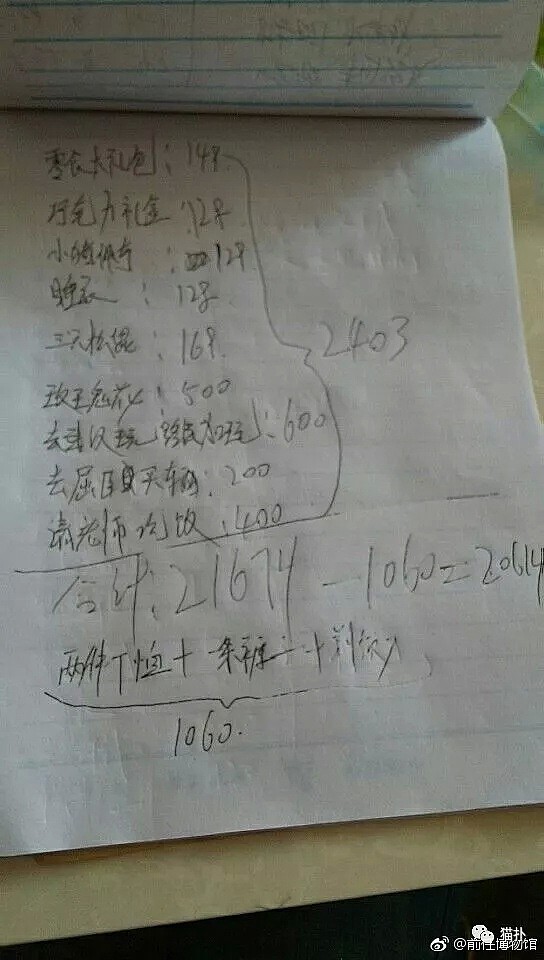 零食大礼包：149
巧克力礼盒：129
小猪佩奇：129
睡衣：128
三只松鼠：169
玫瑰花：500
去武汉玩：600
去屈臣氏买东西：200
请老师吃饭：400
2403
合计：21674-1060=20614
两件T恤+一条裤子+剃须刀
1060.
猫扑
@前任博物馆